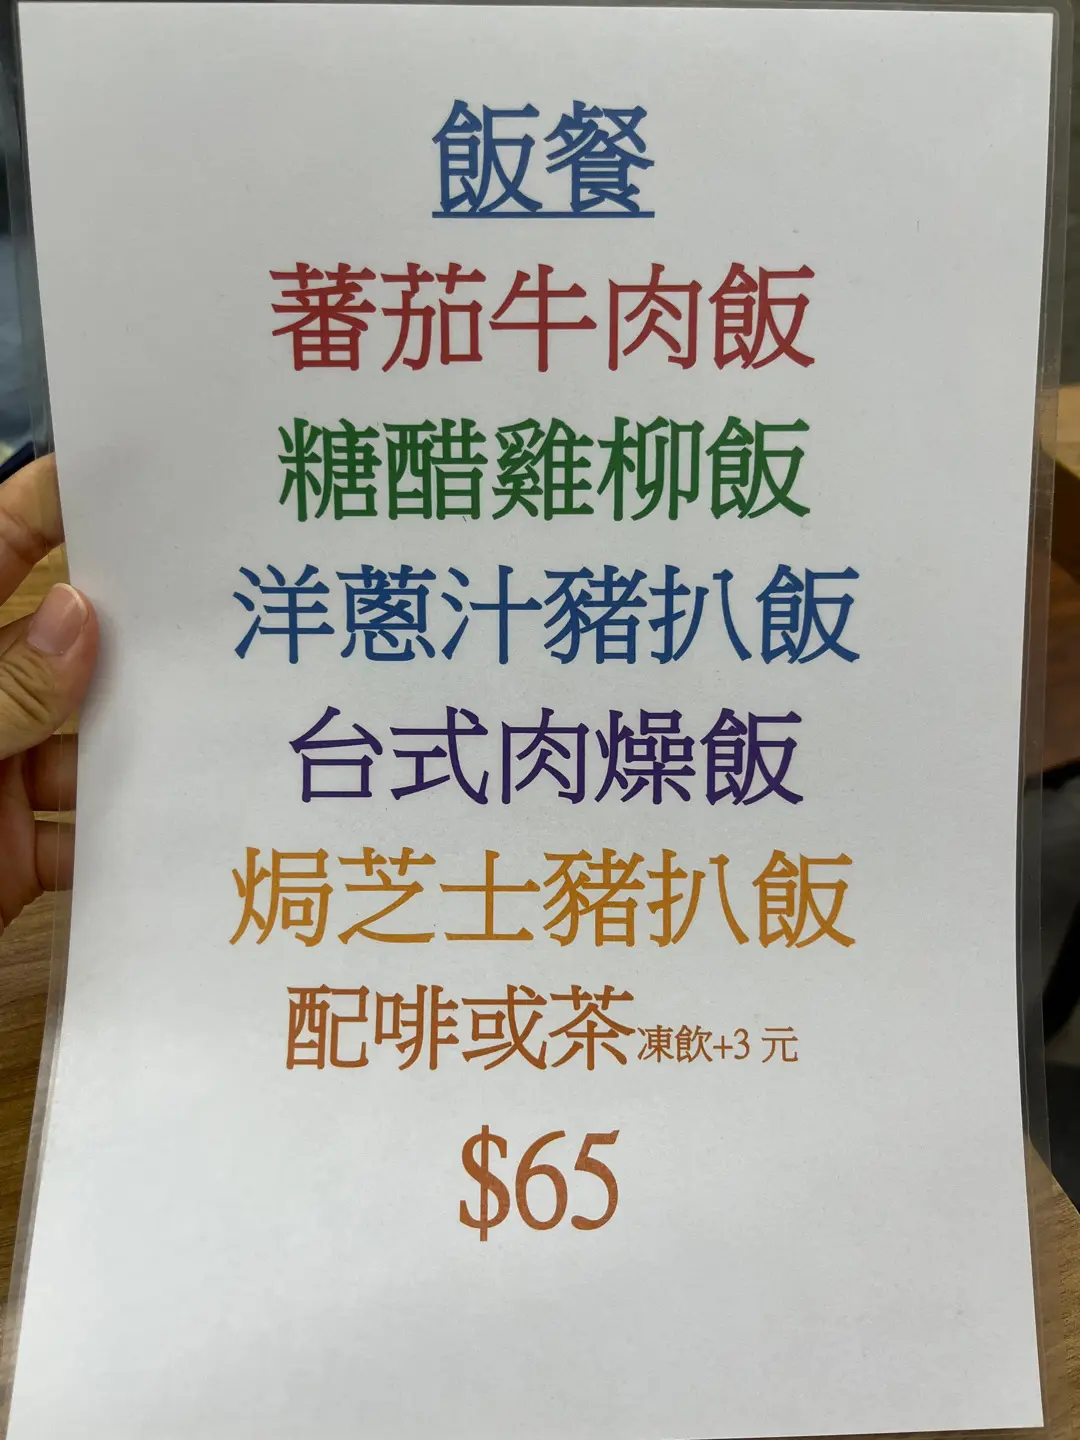 飯餐
蕃茄牛肉飯
糖醋雞柳飯
洋蔥汁豬扒飯
台式肉燥飯
焗芝士豬扒飯
配啡或茶凍飲+3 元
$65